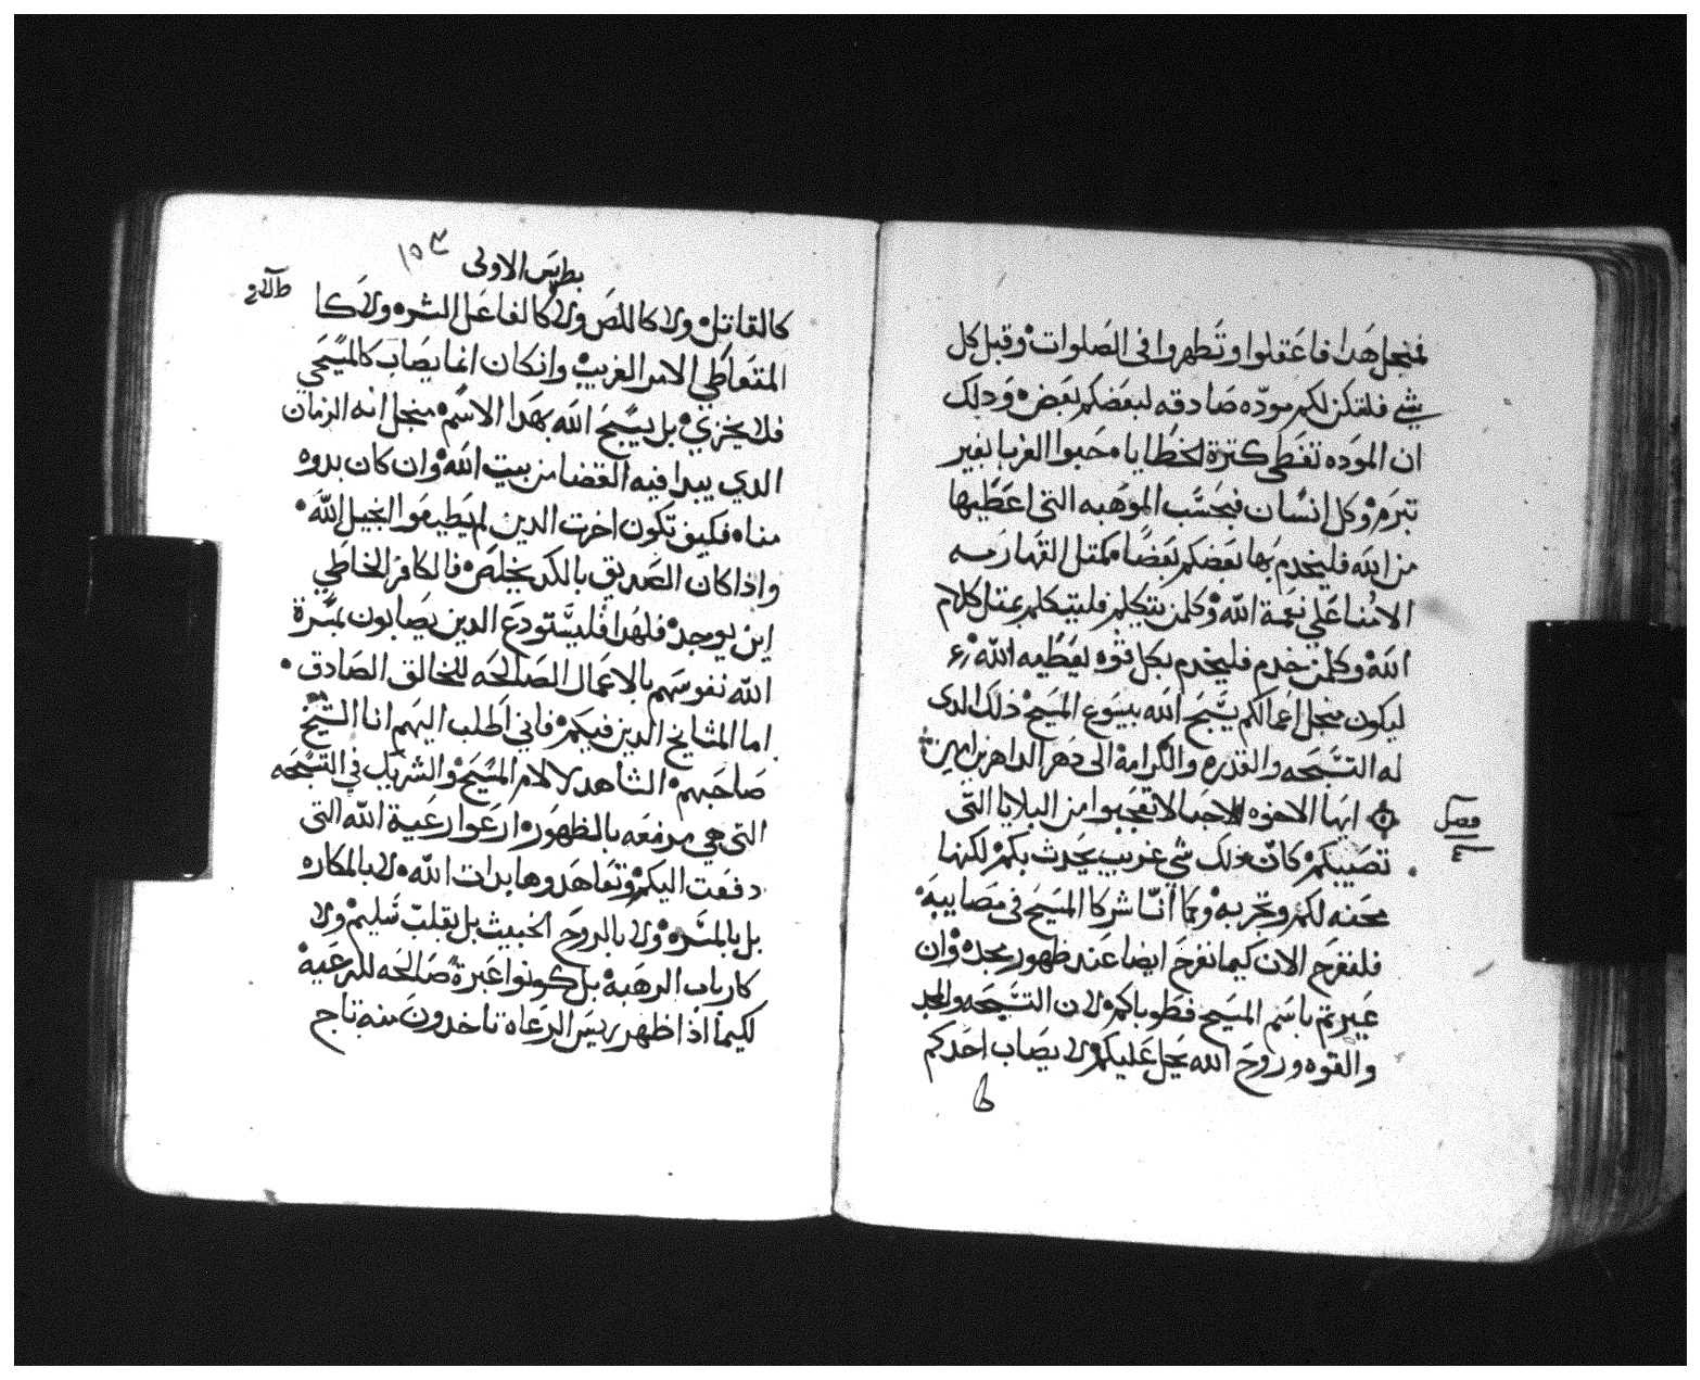 فمنجل هدا فاعقلوا وتطهروا في الصلوات وقبل كل
شي فلتكن لكم مودّه صادقه لبعضكم بعض ودلك
ان الموده تغطي كترة الخطايا حبوا الغربا بغير
تبرم وكل انسان فبحسب الموهبه التي اعطيها
من الله فليخدم بها بعضكم بعضا كمتل القهارمه
الامنا علي نعمة الله وكلمن يتكلم فليتكلم بمتل كلام
الله وكلمن خدم فليخدم بكل قوه يعطيه الله
ليكون منجل اعمالكم يسبح الله بيسوع المسيح ذلك الدى
له التسبحه والقدره والكرامه الى دهر الداهرين امين
ايها الاخوه الاحبا لا تعجبوا من البلايا التي
تصيبكم كانّ ذلك شي غريب يحدث بكم لكنها
محنه لكم وتجربه وبما انّا شركا المسيح في مصايبه
فلنفرح الان كيما نفرح ايضا عند ظهور مجده وان
عيرتم باسم المسيح فطوباكم لان التسبحه والمجد
والقوه وروح الله يحل عليكم لا يصاب احدكم
فصل
٤
بطرس الاولى
كالقاتل ولا كاللص ولا كالفاعل الشره ولا كا
المتعاطي الامر الغريب وانكان انما يصاب كالمسيحي
فلا يخزي بل يسبح الله بهدا الاسم منجل انه الزمان
الدي يبدا فيه القضا من بيت الله وان كان بدوه
مناه فكيف تكون اخرت الدين لم يطيعوا انجيل الله
واذا كان الصديق بالكد يخلص فالكافر الخاطي
اين يوجد فلهدا فليستودع الدين يصابون بمسرة
الله نفوسهم بالاعمال الصالحه للخالق الصادق
اما المشايخ الدين فيكم فاني اطلب اليهم انا الشيخ
صاحبهم الشاهد لالام المسيح والشريك في التسبحه
التي هي مزمعه بالظهور ارعوا رعية الله التي
دفعت اليكم وتعاهدوها بدات الله لا بالمكاره
بل بالمسره ولا بالروح الخبيث بل بقلب سليم ولا
كارباب الرهبه بل كونوا عبرة صالحه للرعيه
لكيما اذا ظهر رييس الرعاه تاخدون منه تاج